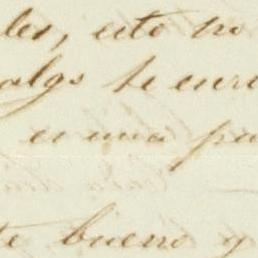 les, esto no
algo te enri
es una pa
te bueno y